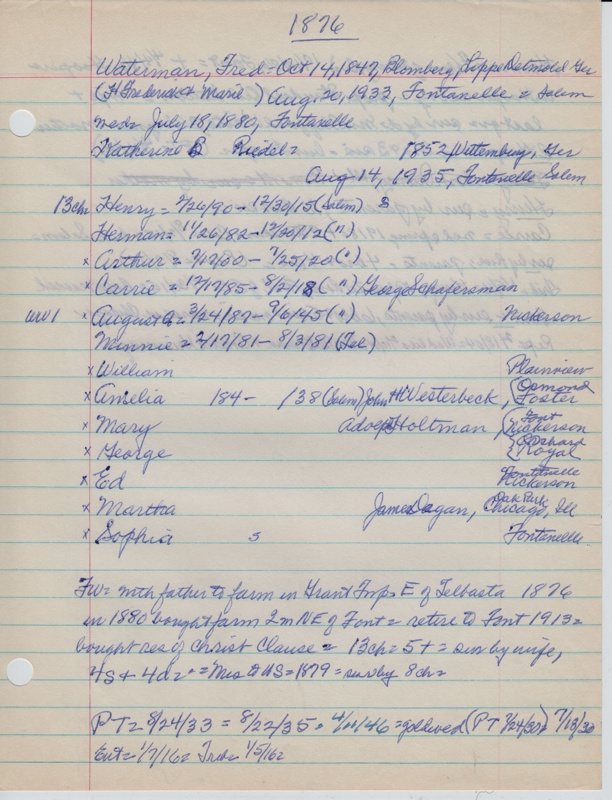 1876
Waterman, Fred - Oct 14, 1847, Blomberg, Lippe Detmold Ger
(H Frederick & Marie) Aug. 20, 1933, Fontanelle = Salem
med = July 18, 1880, Fontanelle
Katherine B Riedel = 1852, Wittemburg, Ger
Aug 14, 1935, Fontanelle Salem
13ch Henry = 2/26/90 - 12/30/15 (Salem) S
Herman = 11/26/82 - 12/30/12 (")
x Arthur = 2/17/00 - 7/25/20 (")
x Carrie = 12/17/85 - 8/2/18 (") George Schafersman
WW1 x August = 3/24/87 - 9/6/45 (") Nickerson
Minnie = 2/17/81 - 8/3/81 (Tel)
x William Plainview
x Amelia 184 - /38 (Salem) John H Westerbeck, Osmond Foster
x Mary Adolph Holtman, Font Nickerson
x George Orchard Royal
x Ed Fontanelle Nickerson
x Martha James Dagan, Oak Park Chicago, Ill
x Sophia S Fontanelle
FW = with father to farm in Grant Twps E of Telbasta 1876
in 1880 bought farm 2m NE of Font = retire to Font 1913 =
bought res of Christ Clause = 13ch = 5+ = surv by wife,
4S + 4d = = Mrs to US = 1879 = surv by 8ch =
PT = 8/24/33 = 8/22/35 = 4/11/46 = (PT 7/24/30) 7/13/30
Ent = 1/7/16 = Trib = 1/5/16 =